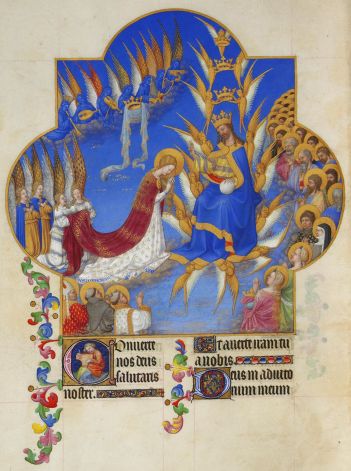 Conuerte
nos deus
salutaris
noster.
Et auerte iram tu
a nobis
Deus in adiuto
rium meum